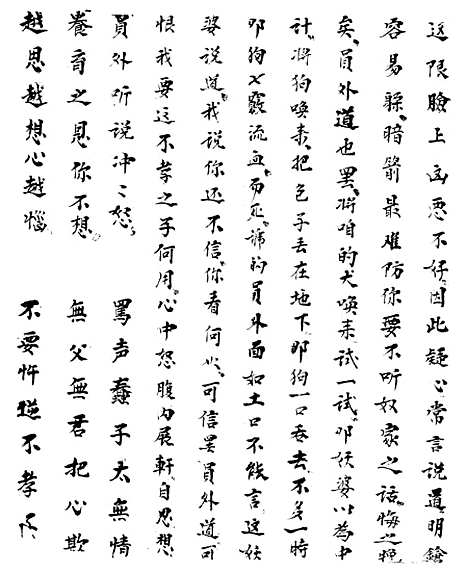 这限臉上凶恶不好因此疑心常言説道明鎗
容易躲暗箭最难防你要不听奴家之话悔之晚
矣員外道也罢将咱的犬唤来试一试叩妖婆以為中
计将狗唤来把包子丢在地下叩狗一口吞去不多一時
叩狗七竅流血而死諕的員外面如土口不能言这妖
婆说道我说你还不信你看何如可信罢員外道可
恨我要这不孝之子何用心中怒腹内展轉自思想
員外听说冲冲怒　罵声蠢子太無情
養育之恩你不想　無父無君把心欺
越思越想心越惱　不要忤逆不孝